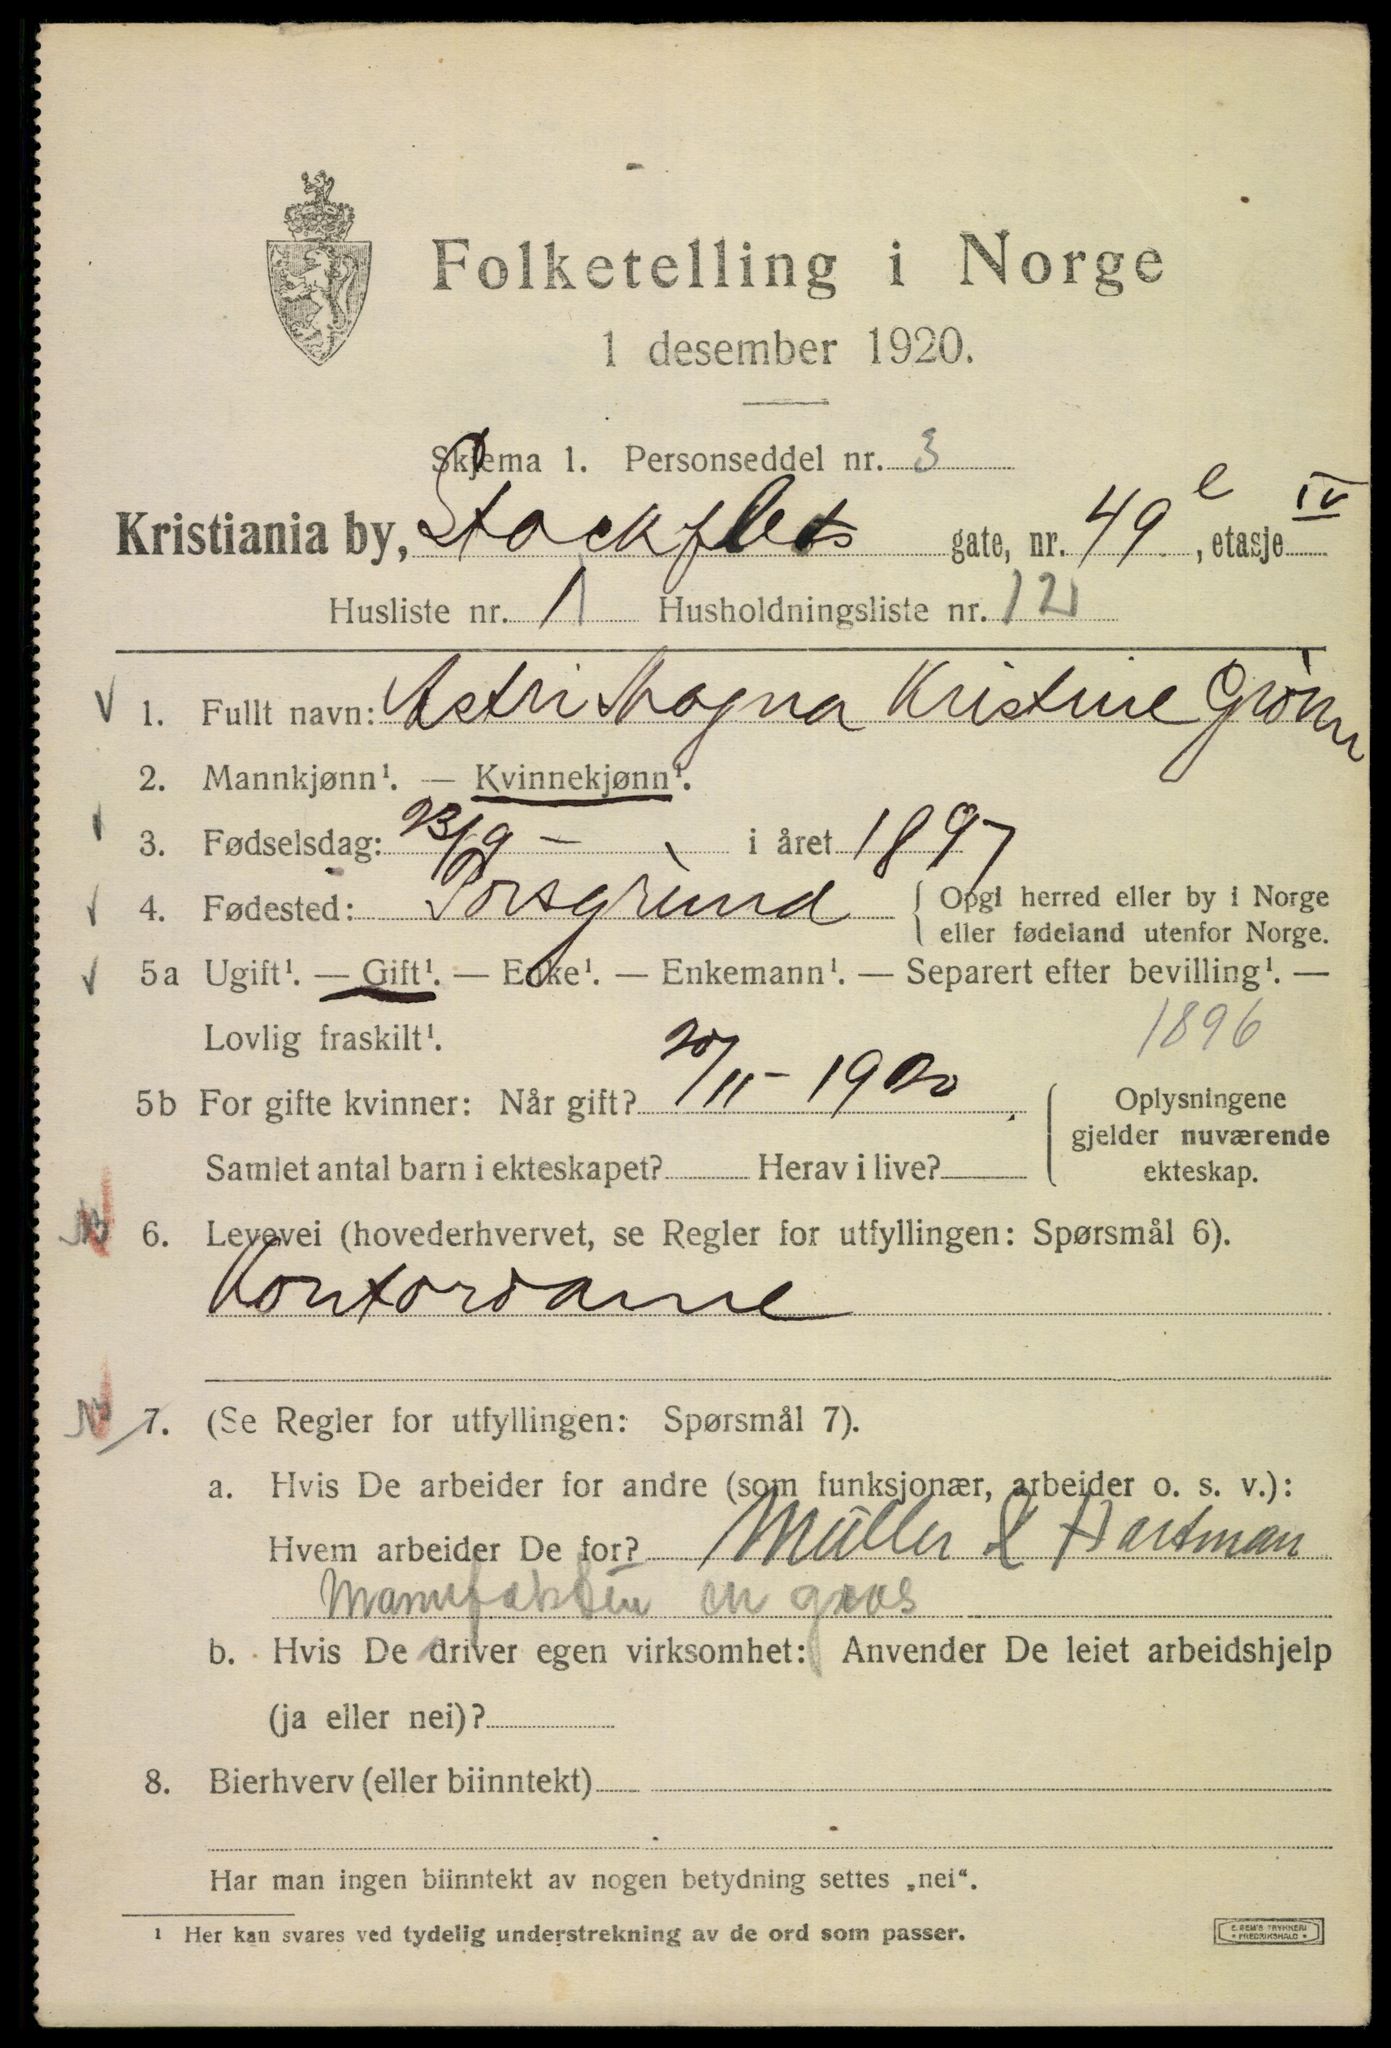 Folketelling i Norge
1 desember 1920.
Skjema 1. Personseddel nr. 3
Kristiania by, Stockflets gate, nr. 49 e, etasje IV
Husliste nr. 1 Husholdningsliste nr. 121
1. Fullt navn: Astri Magna Kristine Grönn
2. Mannkjønn¹. — Kvinnekjønn¹.
3. Fødselsdag: 23/9 - i året 1897
4. Fødested: Porsgrund { Opgi herred eller by i Norge
eller fødeland utenfor Norge.
5a Ugift¹. — Gift¹. — Enke¹. — Enkemann¹. — Separert efter bevilling¹. —
Lovlig fraskilt¹. 1896
5b For gifte kvinner: Når gift? 20/11 - 1920 { Oplysningene
gjelder nuværende
Samlet antal barn i ekteskapet? Herav i live? ekteskap.
6. Levevei (hovederhvervet, se Regler for utfyllingen: Spørsmål 6).
Kontordame
7. (Se Regler for utfyllingen: Spørsmål 7).
a. Hvis De arbeider for andre (som funksjonær, arbeider o. s. v.):
Hvem arbeider De for? Müller & Hartman
Manufaktur en gros
b. Hvis De driver egen virksomhet: Anvender De leiet arbeidshjelp
(ja eller nei)?
8. Bierhverv (eller biinntekt)
Har man ingen biinntekt av nogen betydning settes „nei“.
¹ Her kan svares ved tydelig understrekning av de ord som passer.
E. SEM'S TRYKKERI
FREDRIKSHALD